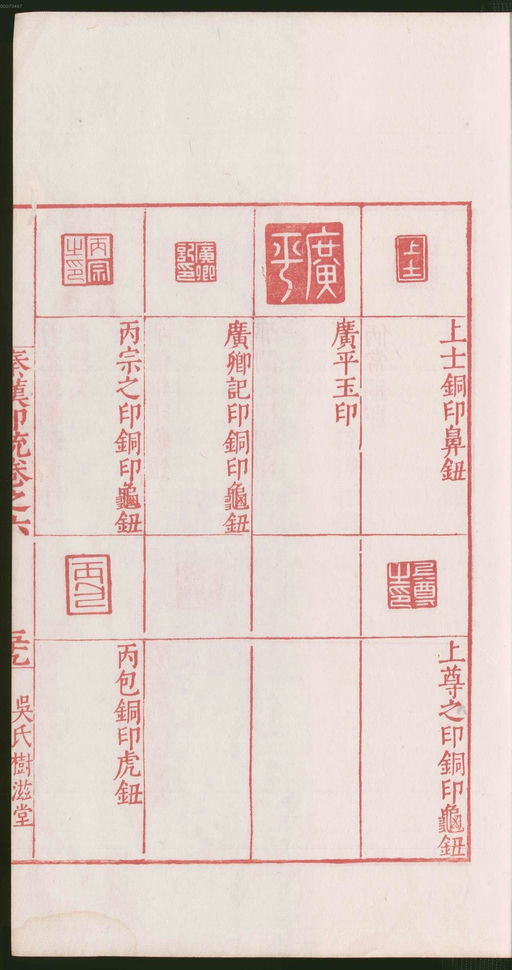 上士
上士銅印鼻鈕
上尊之印
上尊之印銅印龜鈕
廣平
廣平玉印
廣卿記印
廣卿記印銅印龜鈕
丙宗之印
丙宗之印銅印龜鈕
丙包
丙包銅印虎鈕
秦漢印統卷之六
吳氏樹滋堂
00073457